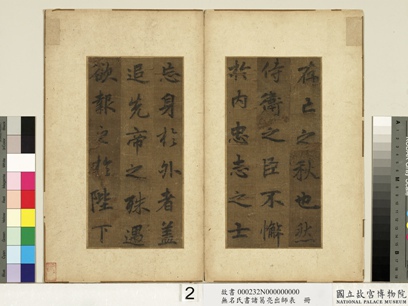 存亡之秋也然
侍衛之臣不懈
於内忠志之士
忘身於外者蓋
追先帝之殊遇
欲報之於陛下
2
故書 000232N000000000
無名氏書諸葛亮出師表 冊
國立故宮博物院
NATIONAL PALACE MUSEUM